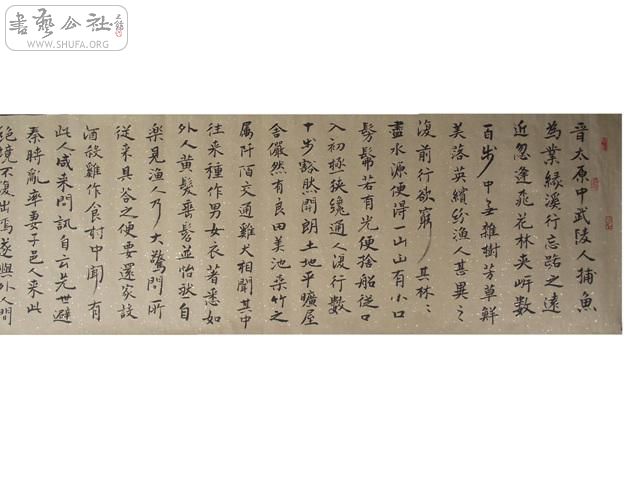 書藝公社
WWW.SHUFA.ORG
晉太原中武陵人捕魚
為業緣溪行忘路之遠
近忽逢桃花林夾岸數
百步中無雜樹芳草鮮
美落英繽紛漁人甚異之
復前行欲窮其林〻
盡水源便得一山山有小口
髣髴若有光便捨船從口
入初極狹纔通人復行數
十步豁然開朗土地平曠屋
舍儼然有良田美池桑竹之
属阡陌交通雞犬相聞其中
往来種作男女衣著悉如
外人黄髮垂髫並怡然自
樂見漁人乃大驚問所
從来具答之便要還家設
酒殺雞作食村中聞有
此人咸来問訊自云先世避
秦時亂率妻子邑人来此
絕境不復出焉遂與外人間